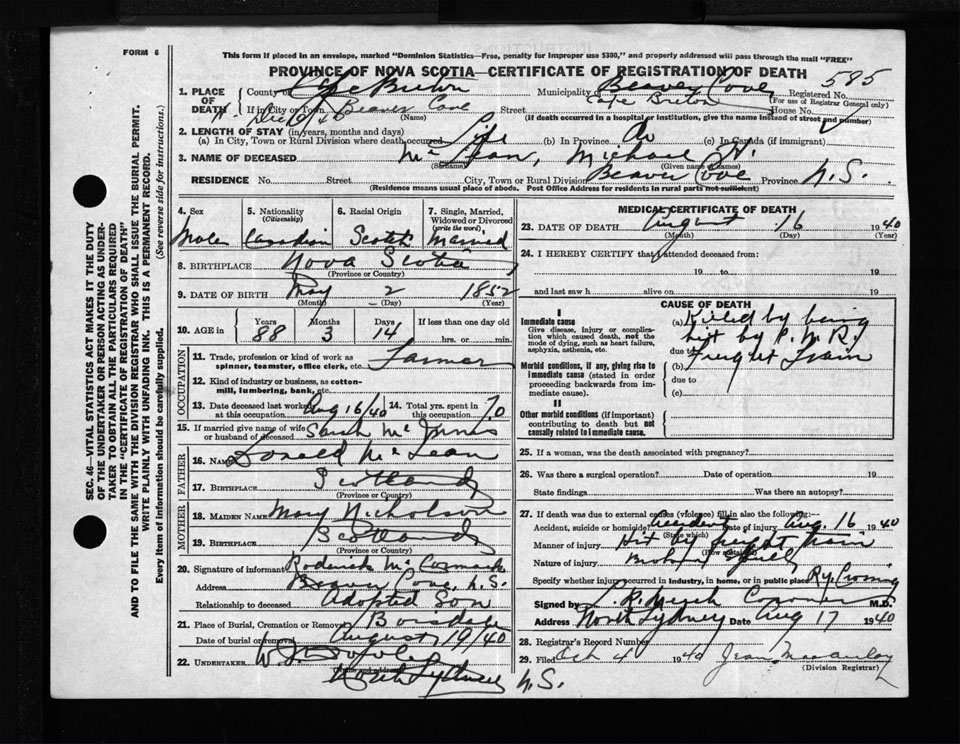 FORM 6
This form if placed in an envelope, marked "Dominion Statistics—Free, penalty for improper use $300," and properly addressed will pass through the mail "FREE"
PROVINCE OF NOVA SCOTIA—CERTIFICATE OF REGISTRATION OF DEATH
595
1. PLACE OF DEATH
County of Cape Breton Municipality Beaver Cove, Cape Breton Registered No.
(For use of Registrar General only)
If in City or Town Beaver Cove Street House No.
(Name) (If death occurred in a hospital or institution, give the name instead of street and number)
2. LENGTH OF STAY (in years, months and days)
(a) In City, Town or Rural Division where death occurred Life (b) In Province do (c) In Canada (if immigrant)
3. NAME OF DECEASED McLean, Michael H.
(Surname) (Given name or names)
RESIDENCE No. Street City, Town or Rural Division Beaver Cove Province N.S.
(Residence means usual place of abode. Post Office Address for residents in rural parts not sufficient)
SEC. 46—VITAL STATISTICS ACT MAKES IT THE DUTY
OF THE UNDERTAKER OR PERSON ACTING AS UNDER-
TAKER TO OBTAIN ALL THE PARTICULARS REQUIRED
IN THE "CERTIFICATE OF REGISTRATION OF DEATH"
AND TO FILE THE SAME WITH THE DIVISION REGISTRAR WHO SHALL ISSUE THE BURIAL PERMIT.
WRITE PLAINLY WITH UNFADING INK. THIS IS A PERMANENT RECORD.
Every item of information should be carefully supplied. (See reverse side for instructions.)
4. Sex Male
5. Nationality (Citizenship) Canadian
6. Racial Origin Scotch
7. Single, Married, Widowed or Divorced (write the word) Married
8. BIRTHPLACE Nova Scotia
(Province or Country)
9. DATE OF BIRTH May 2 1852
(Month) (Day) (Year)
10. AGE in Years 88 Months 3 Days 14 If less than one day old
hrs. or min.
OCCUPATION
11. Trade, profession or kind of work as spinner, teamster, office clerk, etc. Farmer
12. Kind of industry or business, as cotton-mill, lumbering, bank, etc.
13. Date deceased last worked at this occupation Aug 16/40 14. Total yrs. spent in this occupation 70
15. If married give name of wife or husband of deceased Sarah McInnis
FATHER
16. Name Donald McLean
17. Birthplace Scotland
(Province or Country)
MOTHER
18. Maiden Name Mary Nicholson
19. Birthplace Scotland
(Province or Country)
20. Signature of informant Roderick McCormack
Address Beaver Cove, N.S.
Relationship to deceased Adopted Son
21. Place of Burial, Cremation or Removal Boisdale
Date of burial or removal August 19/40
22. UNDERTAKER
North Sydney N.S.
MEDICAL CERTIFICATE OF DEATH
23. DATE OF DEATH August 16 1940
(Month) (Day) (Year)
24. I HEREBY CERTIFY that I attended deceased from:
19 to 19
and last saw h alive on 19
CAUSE OF DEATH
I
Immediate cause
Give disease, injury or complication which caused death, not the mode of dying, such as heart failure, asphyxia, asthenia, etc.
(a) Killed by being
hit by C.N.R.
due to
Freight Train
Morbid conditions, if any, giving rise to immediate cause (stated in order proceeding backwards from immediate cause).
(b)
due to
(c)
II
Other morbid conditions (if important) contributing to death but not causally related to immediate cause.
25. If a woman, was the death associated with pregnancy?
26. Was there a surgical operation? Date of operation 19
State findings Was there an autopsy?
27. If death was due to external causes (violence) fill in also the following:—
Accident, suicide or homicide? Accident Date of injury Aug. 16 1940
(State which)
Manner of injury Hit by freight train
(How sustained)
Nature of injury Broken skull
Specify whether injury occurred in industry, in home, or in public place Ry. Crossing
Signed by Coroner M.D.
Address North Sydney Date Aug 17 1940
28. Registrar's Record Number
29. Filed Oct 4 1940 Jean MacAulay
(Division Registrar)